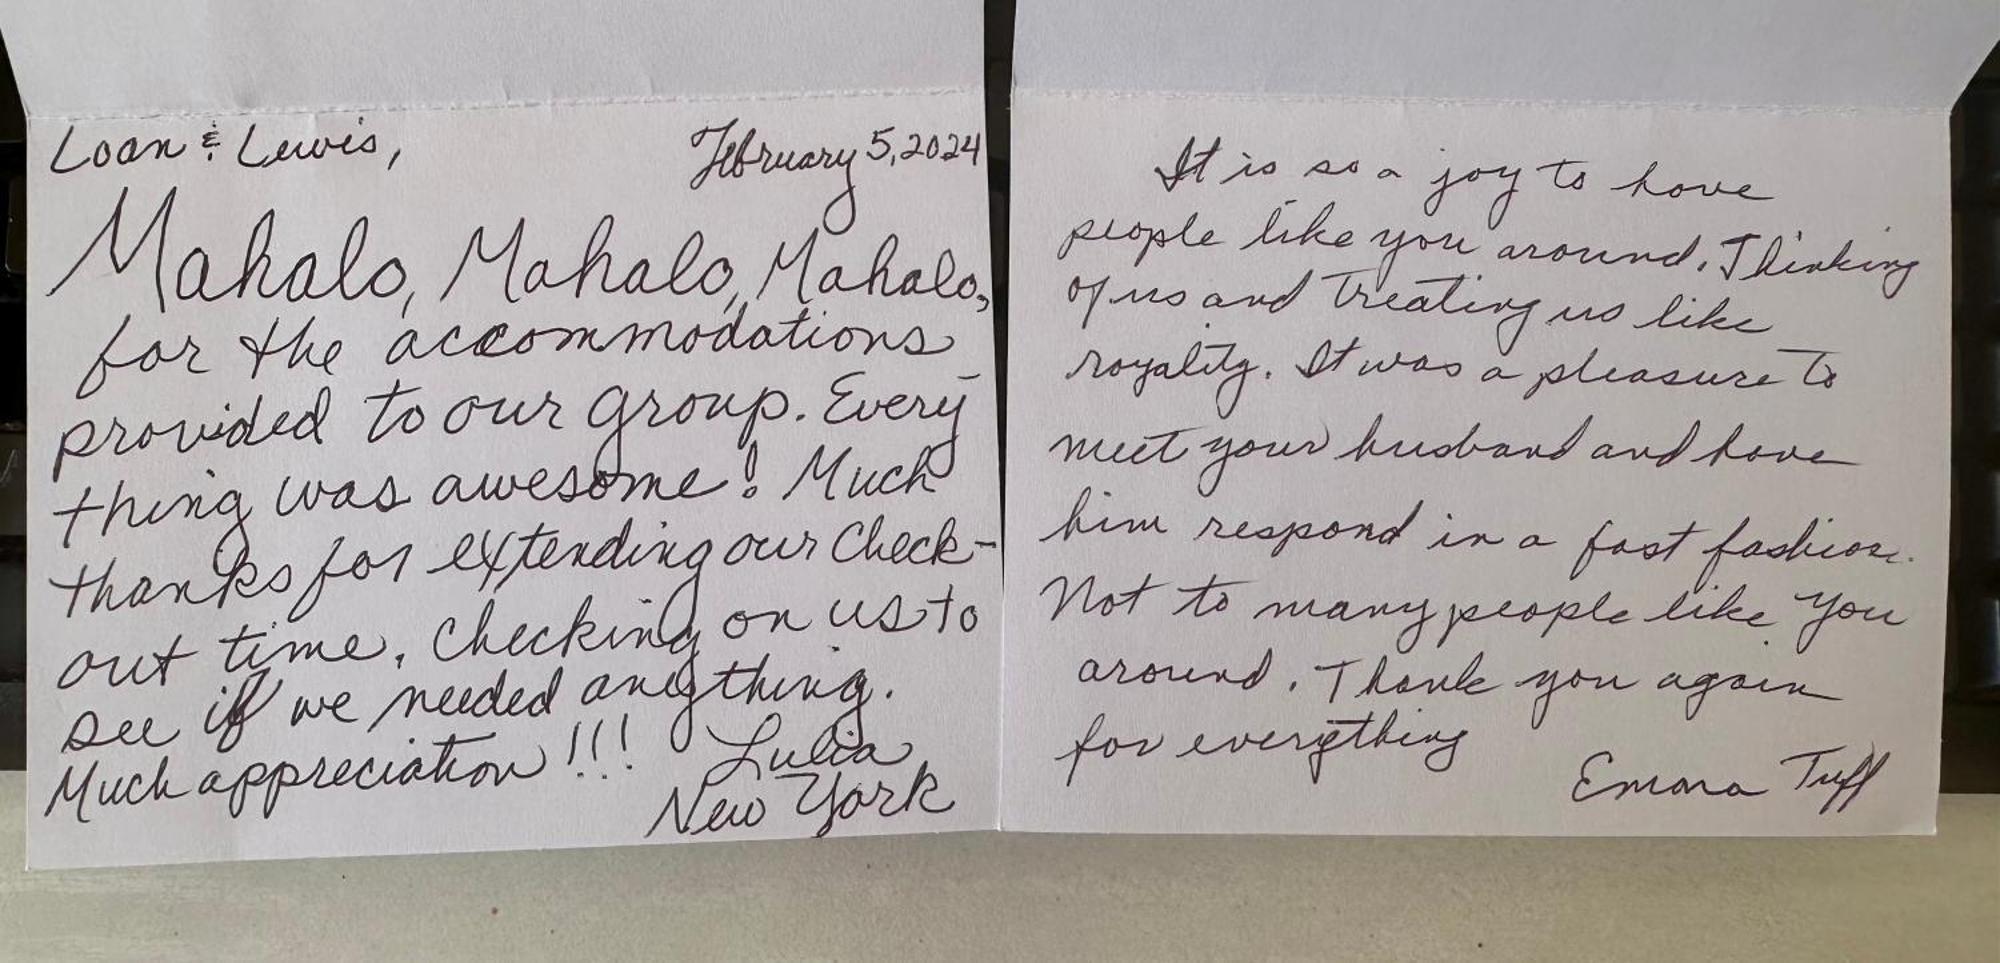 Loan & Lewis,
February 5, 2024
Mahalo, Mahalo, Mahalo,
for the accommodations
provided to our group. Every-
thing was awesome! Much
thanks for extending our Check-
out time, Checking on us to
see if we needed anything.
Much appreciation!!!
Lulia
New York
It is so a joy to have
people like you around. Thinking
of us and treating us like
royality. It was a pleasure to
meet your husband and have
him respond in a fast fashion.
Not to many people like you
around. Thank you again
for everything
Emma Tuff